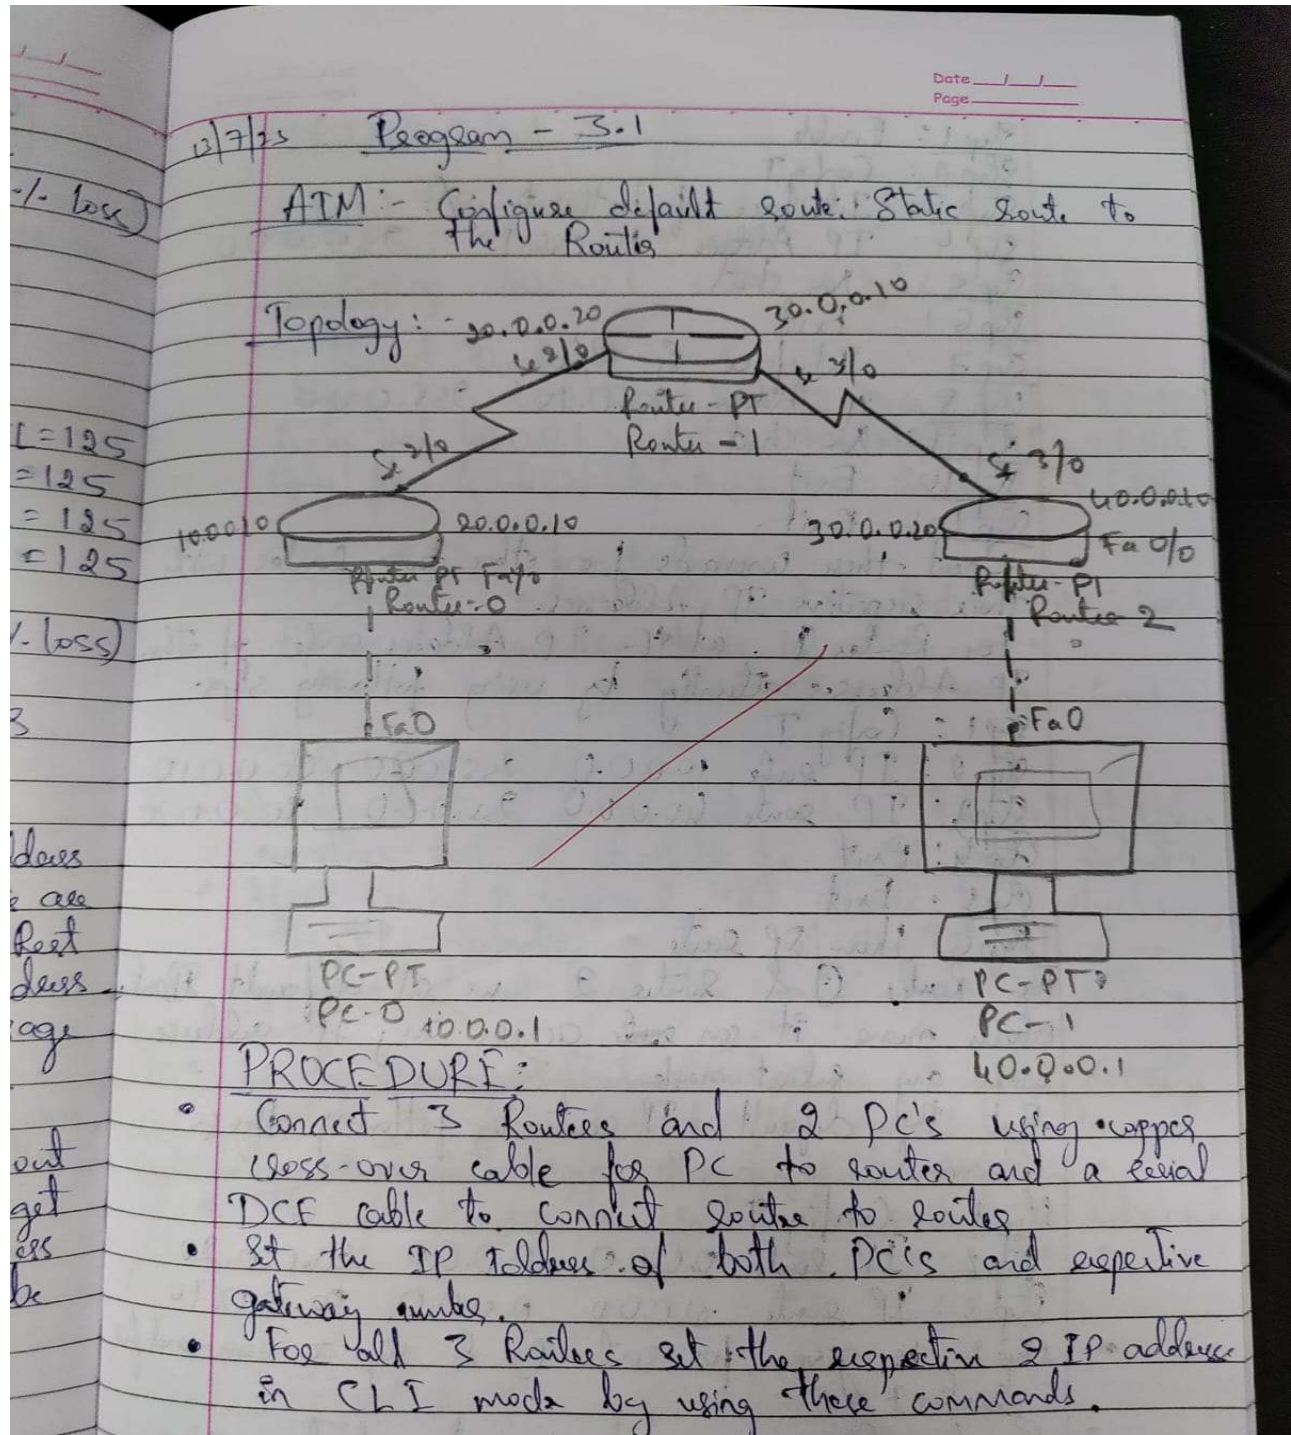 Date __/__/__
Page
13/7/23 Program - 3.1
AIM:- Configure default route, Static route to
the Router
Topology:-
20.0.0.20
30.0.0.10
Se 2/0
Se 3/0
Router-PT
Router-1
Se 2/0
Se 3/0
10.0.0.10
20.0.0.10
30.0.0.20
40.0.0.10
Fa 0/0
Router-PT Fa 0/0
Router-0
Router-PT
Router-2
Fa0
Fa0
PC-PT
PC-0 10.0.0.1
PC-PT
PC-1
40.0.0.1
PROCEDURE:
• Connect 3 Routers and 2 PC's using copper
cross-over cable for PC to router and a serial
DCE cable to connect router to router
• Set the IP Address of both PC's and respective
gateway number.
• For all 3 Routers set the respective 2 IP address
in CLI mode by using these commands.
-/. loss)
L=125
=125
=125
=125
/. loss)
3
dress
e are
Rest
dress
age
out
get
ess
be